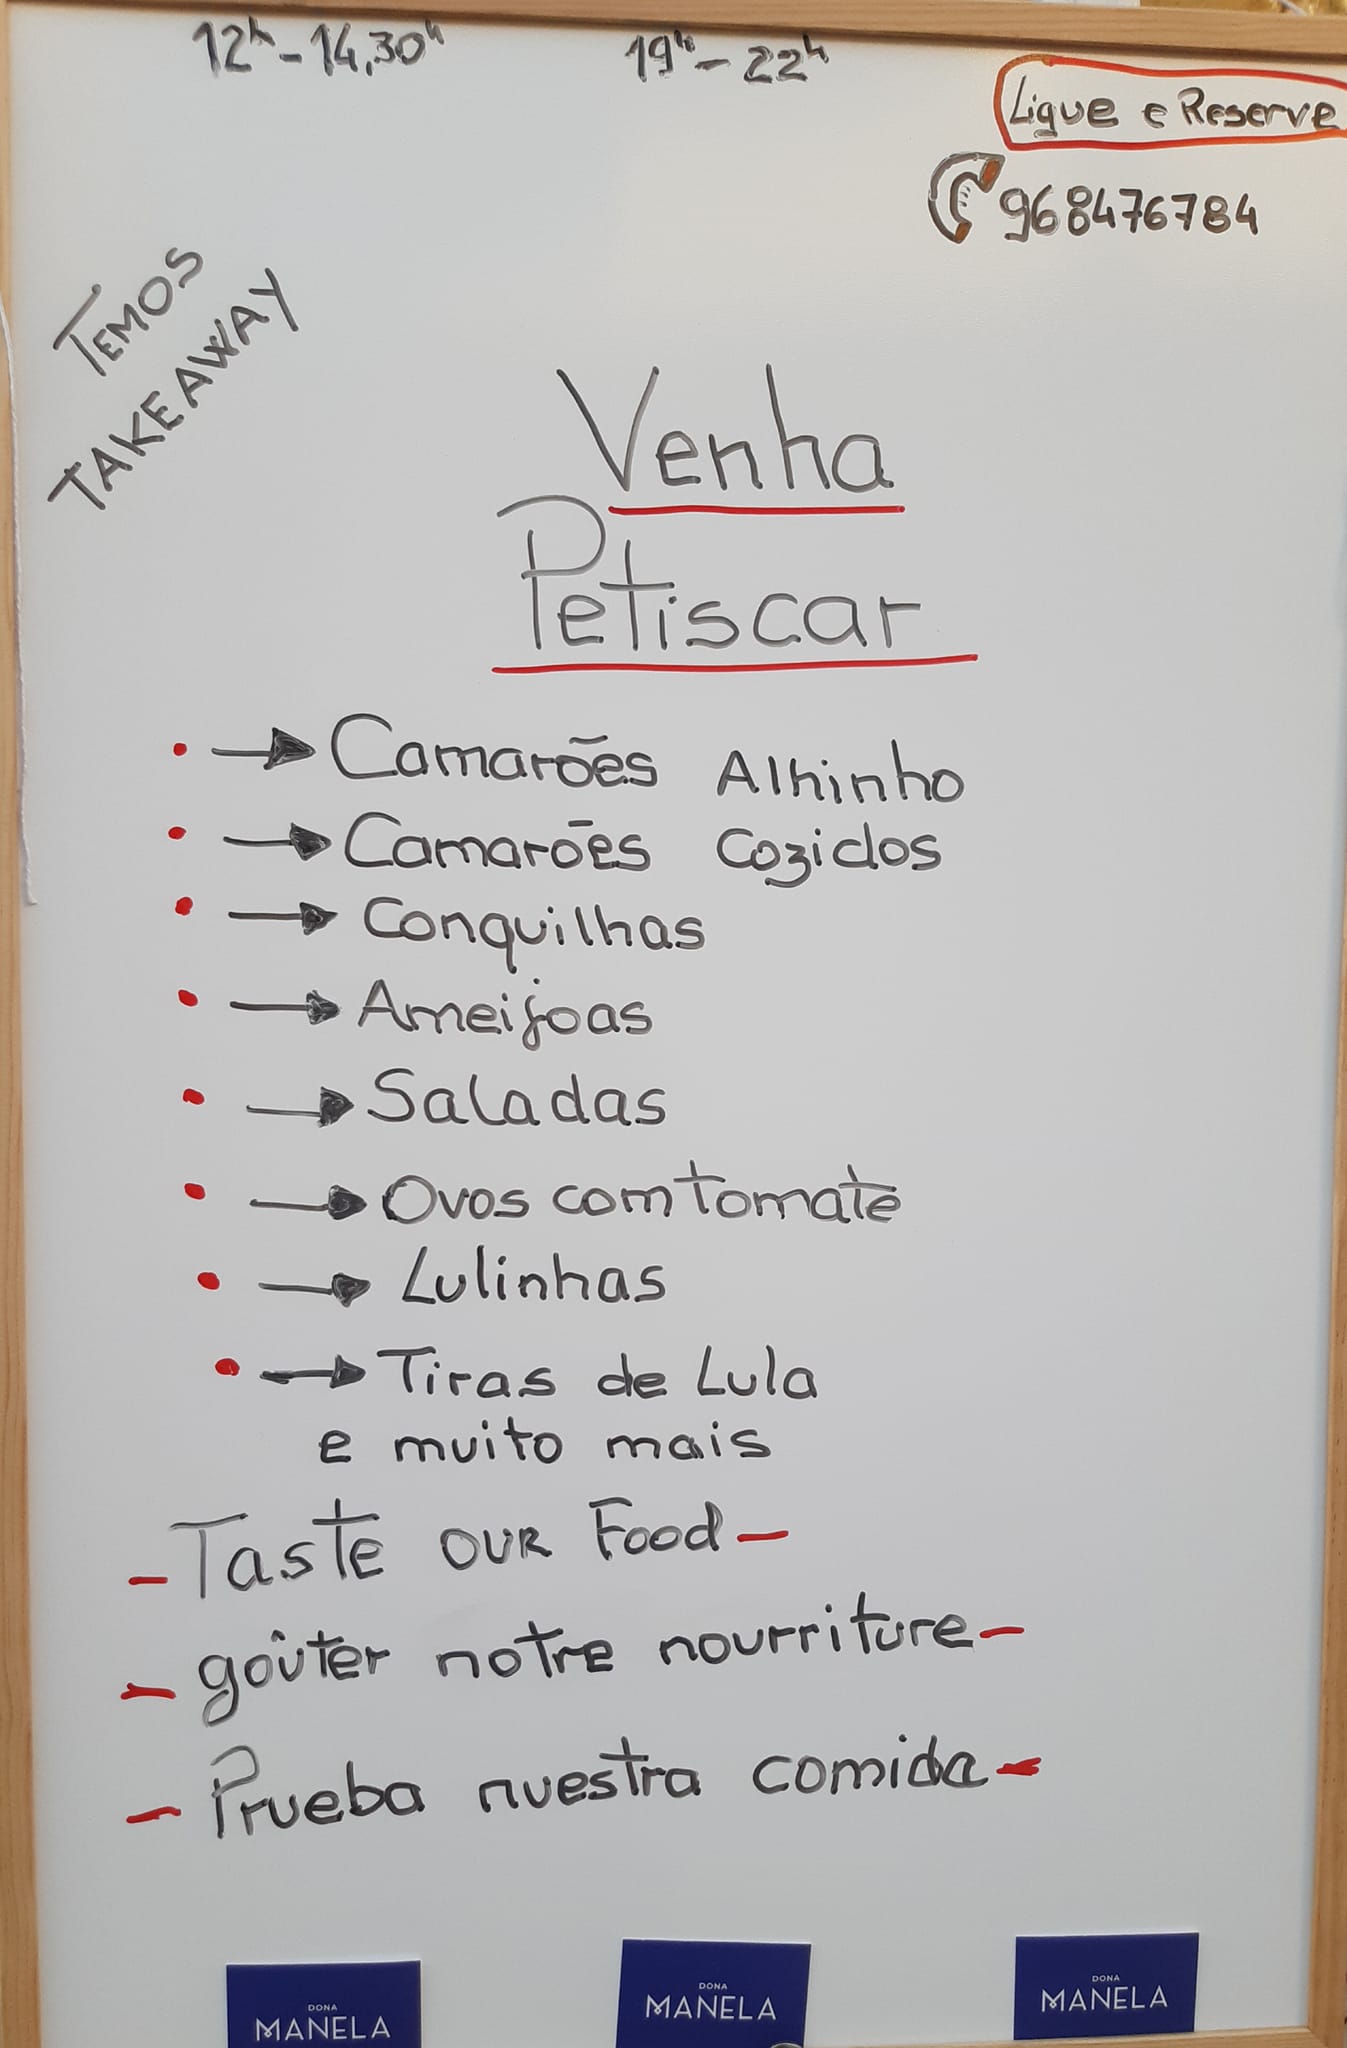 12h - 14,30h
19h - 22h
Ligue e Reserve
968476784
TEMOS
TAKEAWAY
Venha
Petiscar
• → Camarões Alhinho
• → Camarões Cozidos
• → Conquilhas
• → Ameijoas
• → Saladas
• → Ovos com tomate
• → Lulinhas
• → Tiras de Lula
e muito mais
- Taste OUR Food -
- goûter notre nourriture -
- Prueba nuestra comida -
DONA
MANELA
DONA
MANELA
DONA
MANELA